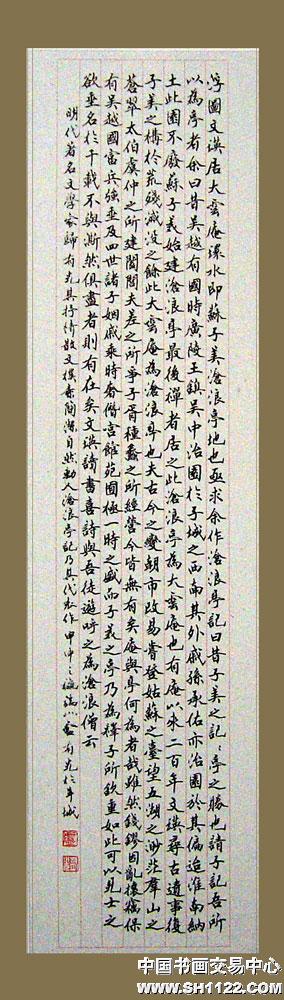 浮图文瑛居大云庵環水即蘇子美滄浪亭地也亟求余作滄浪亭記曰昔子美之記記亭之勝也請子記吾所
以為亭者余曰昔吴越有國時廣陵王鎮吴中治園於子城之西南其外戚孫承佑亦治園於其偏迨淮南納
土此園不廢蘇子美始建滄浪亭最後禪者居之此滄浪亭為大雲庵也有庵以來二百年文瑛尋古遺事復
子美之構於荒殘滅没之餘此大雲庵為滄浪亭也夫古今之變朝市改易嘗登姑蘇之臺望五湖之渺茫群山之
蒼翠太伯虞仲之所建闔閭夫差之所争子胥種蠡之所經營今皆無有矣庵與亭何為者哉雖然錢鏐因亂攘竊保
有吴越國富兵强垂及四世諸子姻戚乘時奢僭宫館苑囿極一時之盛而子美之亭乃為釋子所欽重如此可以見士之
欲垂名於千載不與澌然俱盡者則有在矣文瑛讀書喜詩與吾徒遊呼之為滄浪僧云
明代著名文學家歸有光其抒情散文樸素簡潔自然動人滄浪亭記乃其代表作甲申
中国书画交易中心
www.SH1122.com